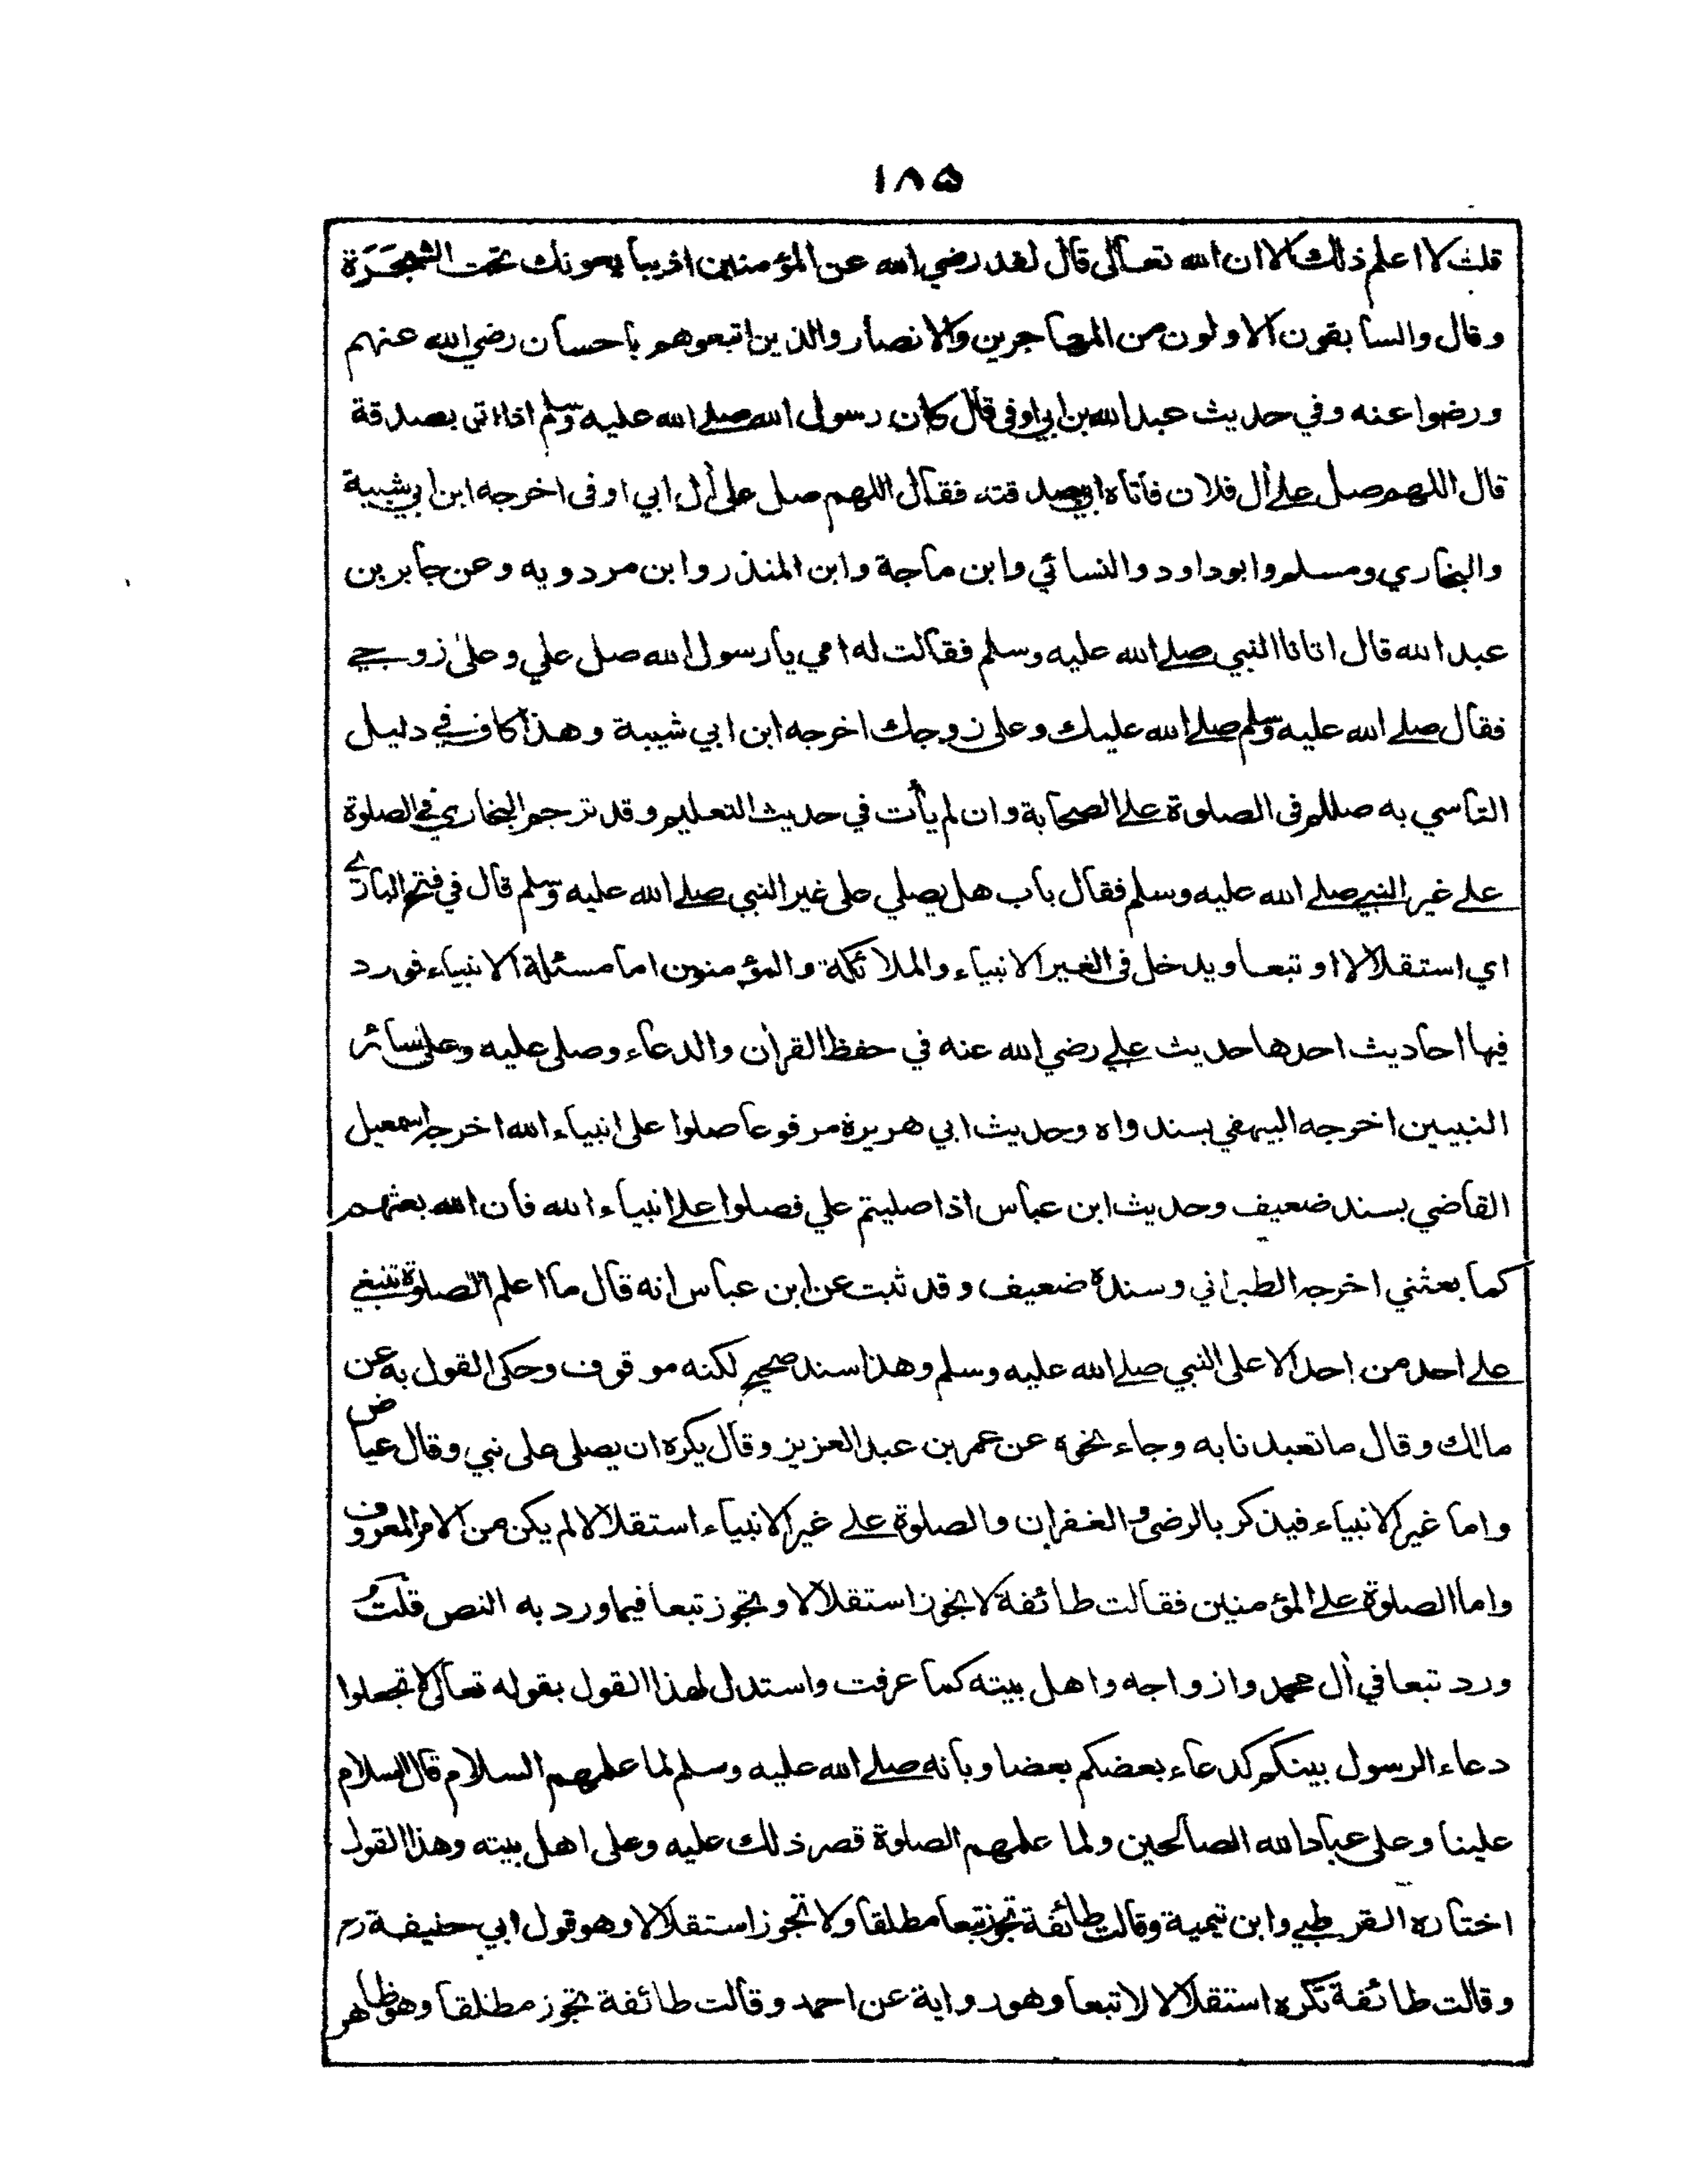 ١٨٥
قلت لا اعلم ذلك الا ان الله تعالى قال لقد رضي الله عن المؤمنين اذ يبايعونك تحت الشجرة
وقال والسابقون الاولون من المهاجرين والانصار والذين اتبعوهم باحسان رضي الله عنهم
ورضوا عنه وفي حديث عبد الله بن ابي اوفى قال كان رسول الله صلى الله عليه وسلم اذا اتى بصدقة
قال اللهم صل على أل فلان فأتاه ابي بصدقته فقال اللهم صل على أل ابي اوفى اخرجه ابن ابي شيبة
والبخاري ومسلم وابو داود والنسائي وابن ماجة وابن المنذر وابن مردويه وعن جابر بن
عبد الله قال اتانا النبي صلى الله عليه وسلم فقالت له امي يا رسول الله صل علي وعلى زوجي
فقال صلى الله عليه وسلم صلى الله عليك وعلى زوجك اخرجه ابن ابي شيبة وهذا كاف في دليل
التاسي به صللم فى الصلوة على الصحابة وان لم يأت في حديث التعليم وقد ترجم البخاري في الصلوة
على غير النبي صلى الله عليه وسلم فقال باب هل يصلي على غير النبي صلى الله عليه وسلم قال في فتح الباري
اي استقلالا او تبعا ويدخل فى الغير الانبياء والملائكة والمؤمنون اما مسئلة الانبياء فورد
فيها احاديث احدها حديث علي رضي الله عنه في حفظ القرأن والدعاء وصلى عليه وعلى سائر
النبيين اخرجه البيهقي بسند واه وحديث ابي هريرة مرفوعا صلوا على انبياء الله اخرجه اسمعيل
القاضي بسند ضعيف وحديث ابن عباس اذا صليتم علي فصلوا على انبياء الله فان الله بعثهم
كما بعثني اخرجه الطبراني وسنده ضعيف وقد ثبت عن ابن عباس انه قال ما اعلم الصلوة تنبغي
على احد من احد الا على النبي صلى الله عليه وسلم وهذا سند صحيح لكنه موقوف وحكى القول به عن
مالك وقال ما تعبدنا به وجاء نحوه عن عمر بن عبد العزيز وقال يكره ان يصلى على نبي وقال عياض
واما غير الانبياء فيذكر بالرضى والغفران والصلوة على غير الانبياء استقلالا لم يكن من الامر المعروف
واما الصلوة على المؤمنين فقالت طائفة لا يجوز استقلالا ويجوز تبعا فيما ورد به النص قلت
ورد تبعا في أل محمد وازواجه واهل بيته كما عرفت واستدل لهذا القول بقوله تعالى لا تجعلوا
دعاء الرسول بينكم كدعاء بعضكم بعضا وبانه صلى الله عليه وسلم لما علمهم السلام قال السلام
علينا وعلى عباد الله الصالحين ولما علمهم الصلوة قصر ذلك عليه وعلى اهل بيته وهذا القول
اختاره القرطبي وابن تيمية وقالت طائفة تجوز تبعا مطلقا ولا تجوز استقلالا وهو قول ابي حنيفة رح
وقالت طائفة تكره استقلالا لا تبعا وهو رواية عن احمد وقالت طائفة تجوز مطلقا وهو ظاهر